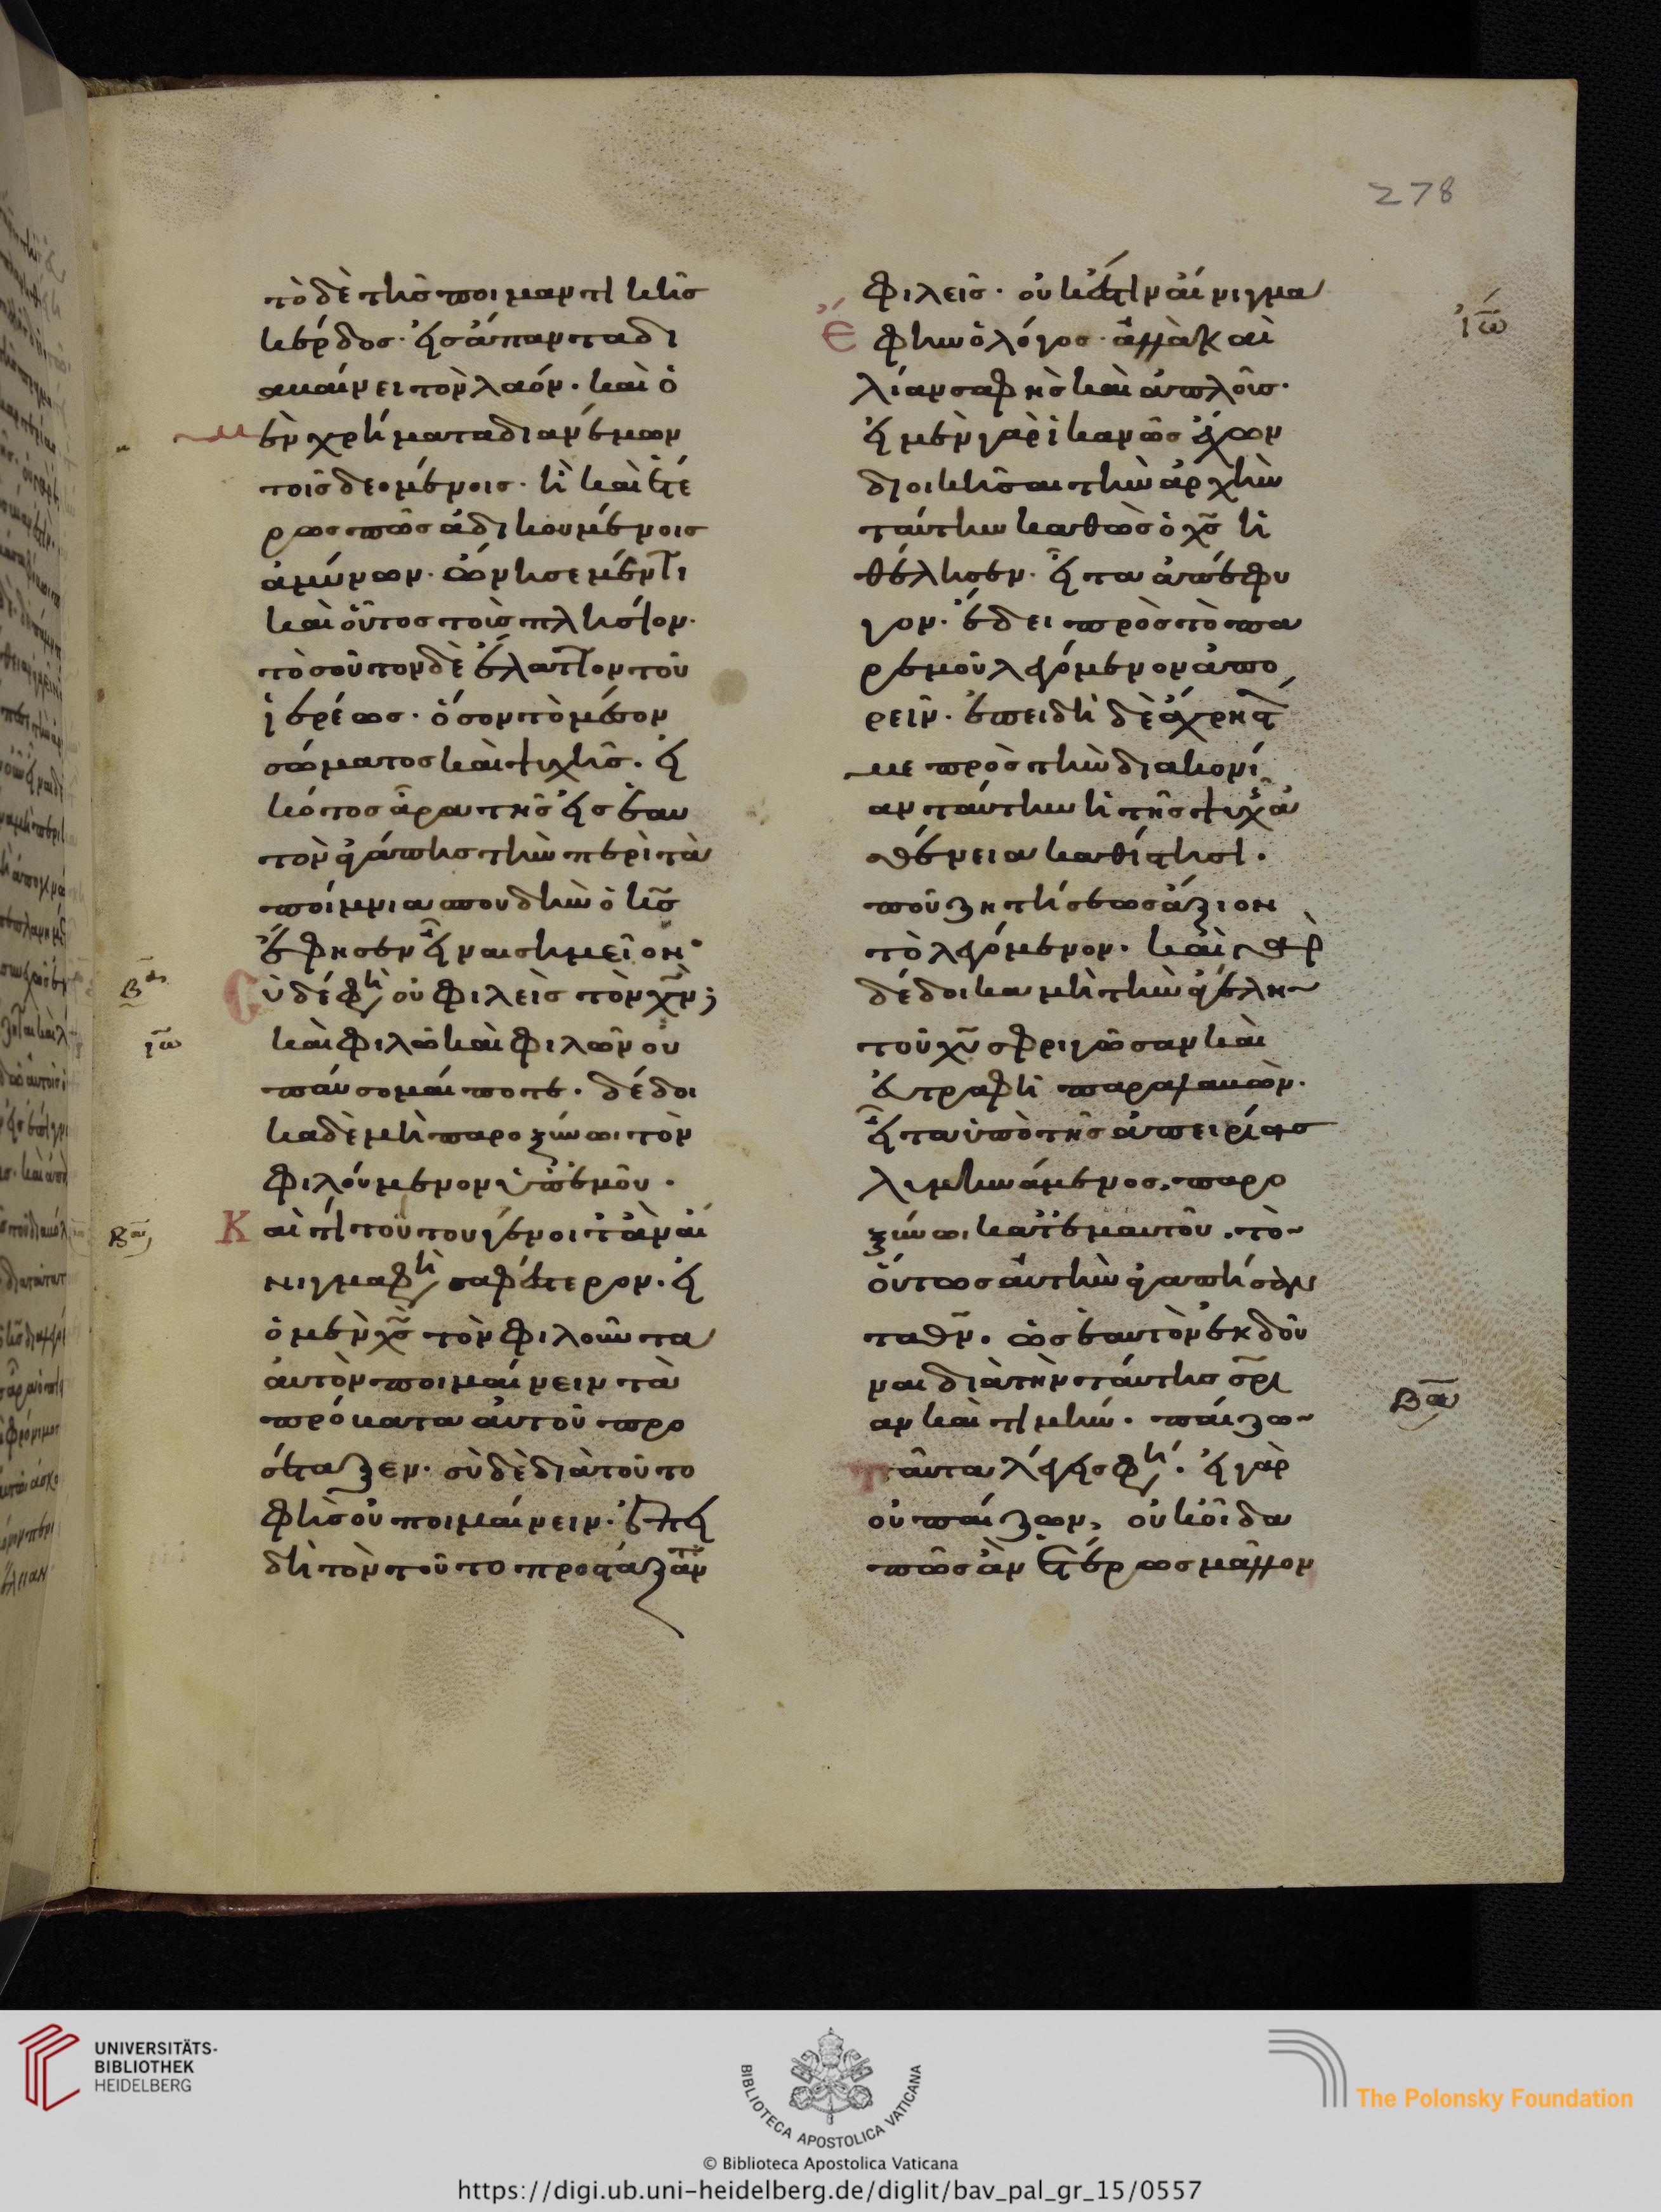 278
τὸ δὲ τῆς ποιμαντικῆς
κέρδος· εἰς ἅπαντα δι
αβαίνει τὸν λαόν. καὶ ὁ
μὲν χρήματα διανέμων
τοῖς δεομένοις· ἢ καὶ ἑτέ
ρως πῶς ἀδικουμένοις
ἀμύνων. ὤνησε μέν τι
καὶ οὗτος τοὺς πλησίον.
τοσοῦτον δὲ ἔλαττον τοῦ
ἱερέως. ὅσον τὸ μέσον
σώματος καὶ ψυχῆς. εἰ
κότως ἄρα τῆς εἰς ἑαυ
τὸν ἀγάπης τὴν περὶ τὰ
ποίμνια σπουδὴν ὁ κς
ἔφησεν εἶναι σημεῖον.
Βασ
Σὺ δέ φη οὐ φιλεῖς τὸν χν;
ιω
καὶ φιλῶ καὶ φιλῶν οὐ
παύσομαί ποτε. δέδοι
κα δὲ μὴ παροξύνω τὸν
φιλούμενον ὑπ' ἐμοῦ.
Βασ
Καὶ τί τούτου γένοιτ' ἂν αἴ
νιγμα φη σαφέστερον. εἰ
ὁ μὲν χς τὸν φιλοῦντα
αὐτὸν ποιμαίνειν τὰ
πρόβατα αὐτοῦ προ
σέταξεν. σὺ δὲ διὰ τοῦτο
φῂς οὐ ποιμαίνειν. ἐπει
δὴ τὸν τοῦτο προστάξαντα
φιλεῖς. οὐκ ἔστιν αἴνιγμα
ιω
Ἔφην ὁ λόγος. ἀλλὰ καὶ
λίαν σαφὴς καὶ ἁπλοῦς.
εἰ μὲν γὰρ ἱκανῶς ἔχων
διοικῆσαι τὴν ἀρχὴν
ταύτην καθὼς ὁ χς ἠ
θέλησεν. εἶτα ἀπέφυ
γον. ἔδει πρὸς τὸ πα
ρ' ἐμοῦ λεγόμενον ἀπο
ρεῖν. ἐπειδὴ δὲ ἄχρηστόν
με πρὸς τὴν διακονί
αν ταύτην ἡ τῆς ψυχῆς ἀ
σθένεια καθίστησι.
ποῦ ζητήσεως ἄξιον
τὸ λεγόμενον. καὶ γὰρ
δέδοικα μὴ τὴν ἀγέλην
τοῦ χυ σφριγῶσαν καὶ
εὐτραφῆ παραλαβών.
εἶτα ὑπὸ τῆς ἀπειρίας
λυμηνάμενος. παρο
ξύνω κατ' ἐμαυτοῦ. τὸν
οὕτως αὐτὴν ἀγαπήσαν
τα θν. ὡς ἑαυτὸν ἐκδοῦ
ναι διὰ τὴν ταύτης σρι
αν καὶ τιμήν. παίζων
Βασ
ταῦτα λέγεις φη. εἰ γὰρ
οὐ παίζων, οὐκ οἶδα
πῶς ἂν ἑτέρως μᾶλλον
UNIVERSITÄTS-
BIBLIOTHEK
HEIDELBERG
BIBLIOTECA APOSTOLICA VATICANA
© Biblioteca Apostolica Vaticana
The Polonsky Foundation
https://digi.ub.uni-heidelberg.de/diglit/bav_pal_gr_15/0557